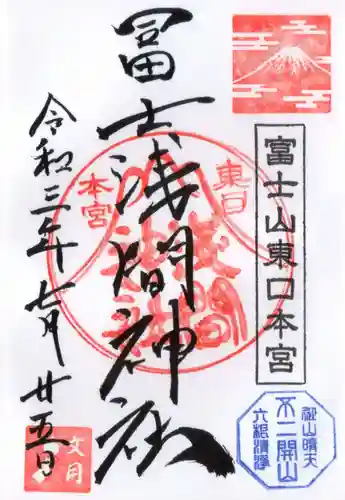 富士山東口本宮
冨士浅間神社
東口
本宮
浅間
神社
令和三年七月廿五日
文月
不二開山
御山晴天
六根清浄